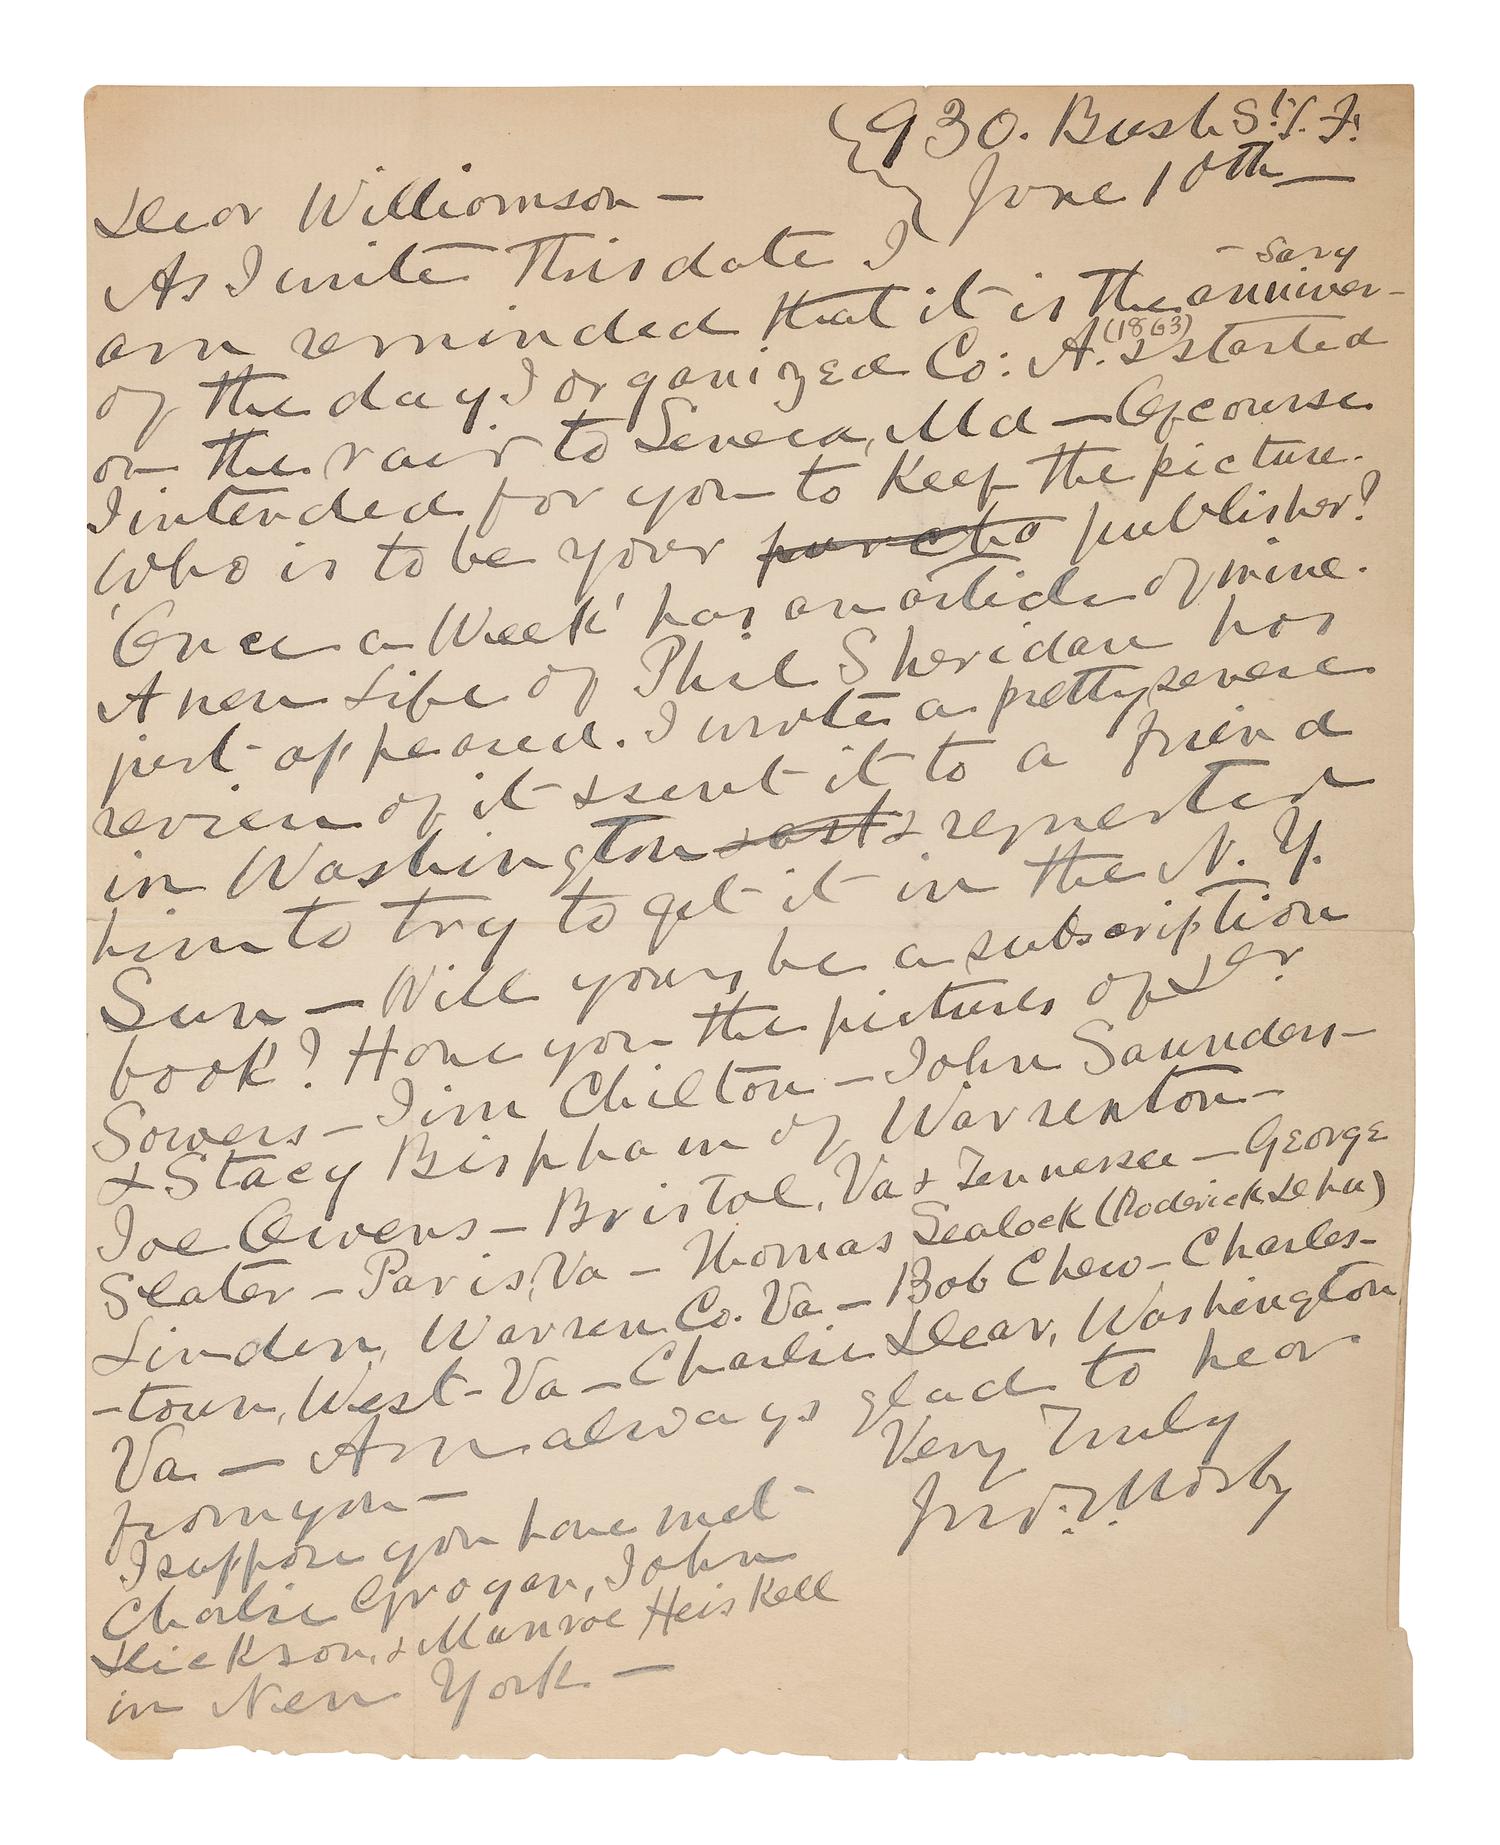 930. Bush St. S. F.
June 10th —
Dear Williamson —
As I write this date I
am reminded that it is the anniver-
-sary
of the day I organized Co: A. (1863) & started
on the raid to Seneca, Md — Of course
I intended for you to keep the picture.
Who is to be your publisher?
'Once a Week' has an article of mine.
A new Life of Phil Sheridan has
just appeared. I wrote a pretty severe
review of it & sent it to a friend
in Washington & requested
him to try to get it in the N. Y.
Sun — Will yours be a subscription
book? Have you the pictures of Dr.
Sowers — Jim Chilton — John Saunders —
& Stacy Bispham of Warrenton —
Joe Owens — Bristol, Va & Tennessee — George
Slater — Paris, Va — Thomas Sealock (Roderick Dhu)
Linden, Warren Co. Va — Bob Chew — Charles-
-town, West-Va — Charlie Dear, Washington
Va — Am always glad to hear
from you —
Very Truly
Jno. S. Mosby
I suppose you have met
Charlie Grogan, John
Dickson, & Munroe Heiskell
in New York —